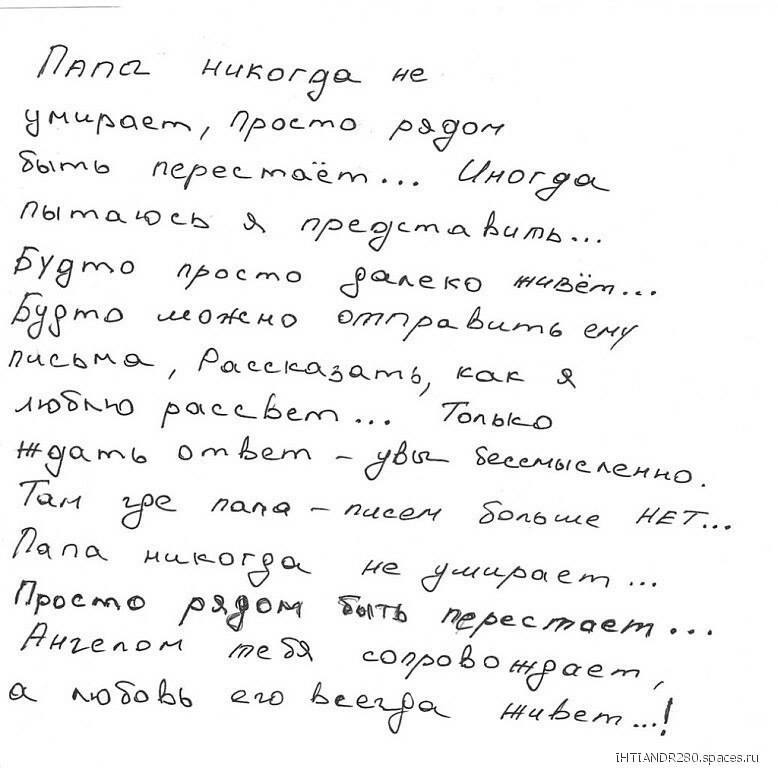 Папа никогда не
умирает, просто рядом
быть перестаёт... Иногда
пытаюсь я представить...
Будто просто далеко живёт...
Будто можно отправить ему
письма, Рассказать, как я
люблю рассвет... Только
ждать ответ - увы бессмысленно.
Там где папа - писем больше НЕТ...
Папа никогда не умирает...
Просто рядом быть перестает...
Ангелом тебя сопровождает,
а любовь его всегда живет...!
iHTIANDR280.spaces.ru